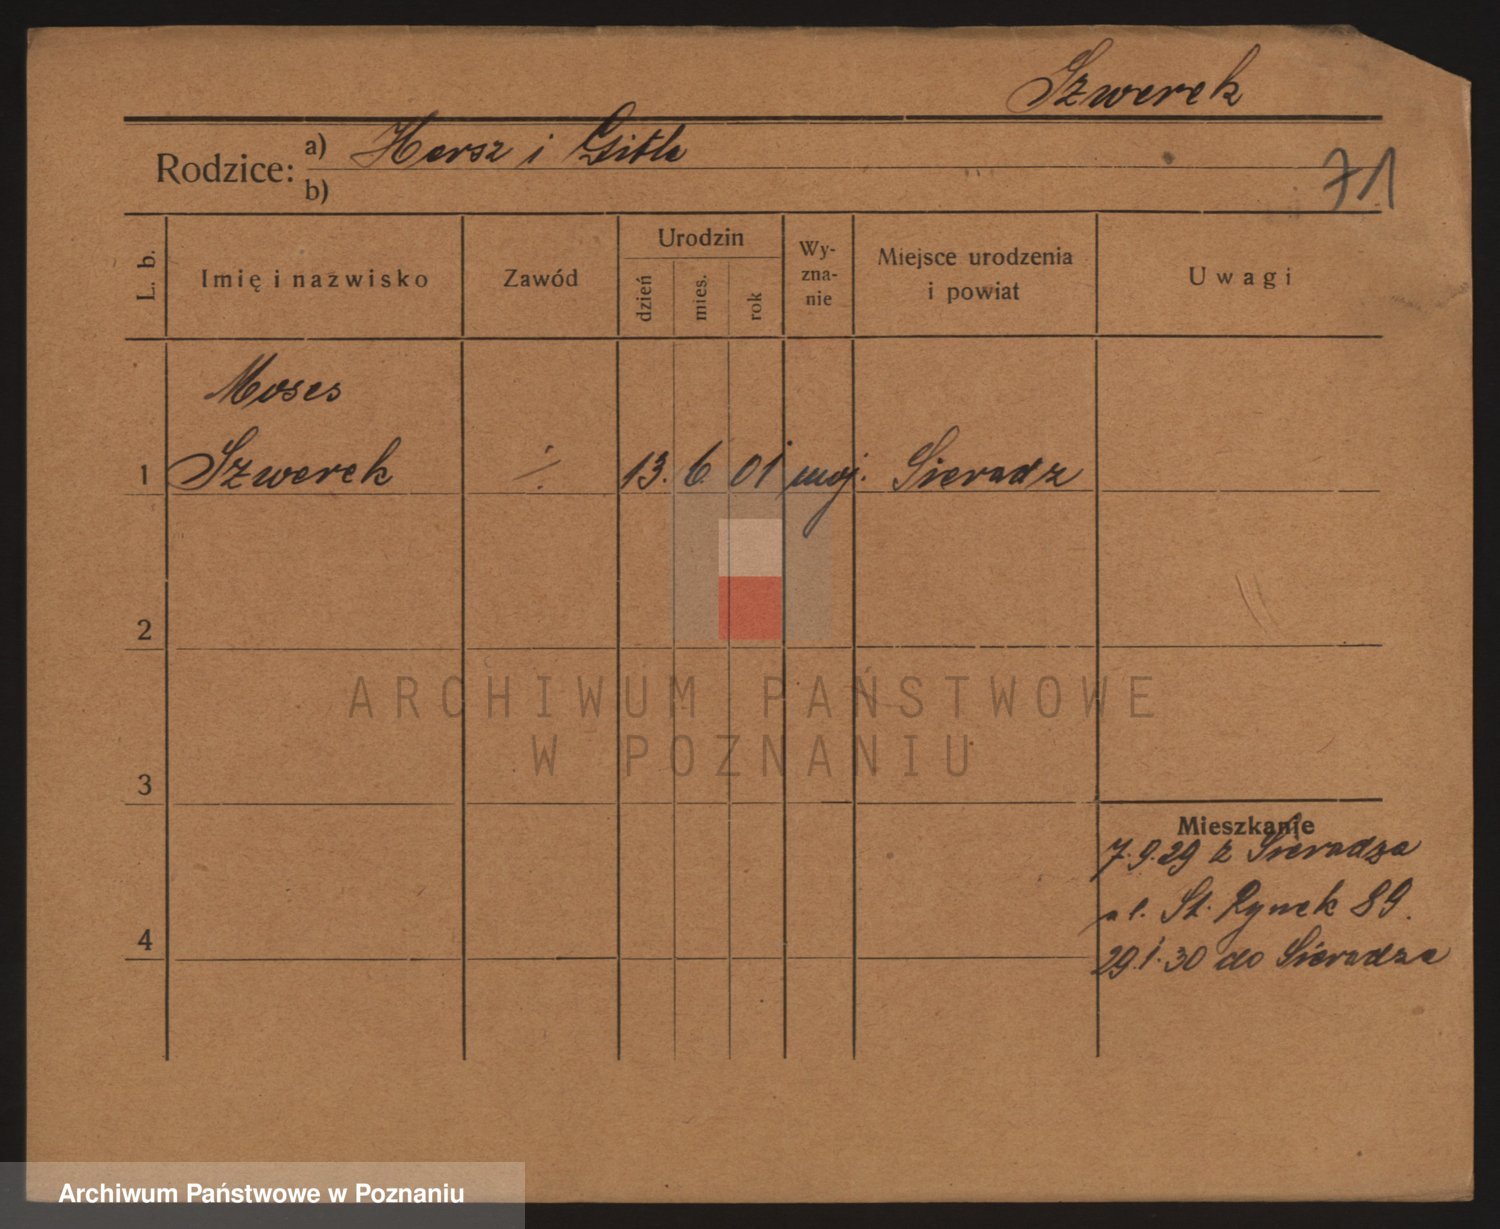 Szwerek
Rodzice: a) Hersz i Gitla
b)
71
L. b.
Imię i nazwisko
Zawód
Urodzin
dzień
mies.
rok
Wy-
zna-
nie
Miejsce urodzenia
i powiat
Uwagi
Moses
1 Szwerek ./. 13. 6. 01 moj. Sieradz
2
3
4
Mieszkanie
7.9.29 z Sieradza
ul. St. Rynek 89.
29.1.30 do Sieradza
ARCHIWUM PAŃSTWOWE
W POZNANIU
Archiwum Państwowe w Poznaniu